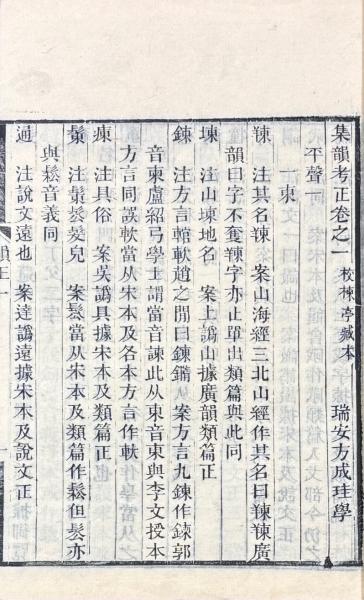 集韻考正卷之一 校楝亭藏本 瑞安方成珪學
平聲一
東
䍶 注其名䍶 案山海經三北山經作其名曰䍶䍶廣
韻曰字不奪䍶字亦止單出類篇與此同
埬 注山埬地名 案上譌山據廣韻類篇正
鍊 注方言輨軑趙之閒曰鍊鏅 案方言九鍊作錬郭
音東盧紹弓學士謂當音諫此从東音東與李文授本
方言同誤軟當从宋本及各本方言作軑
㾓 注具俗 案吳譌具據宋本及類篇正
鬃 注鬃髮皃 案鬆當从宋本及類篇作鬆但鬆亦
與鬆音義同
通 注說文遠也 案達譌遠據宋本及說文正